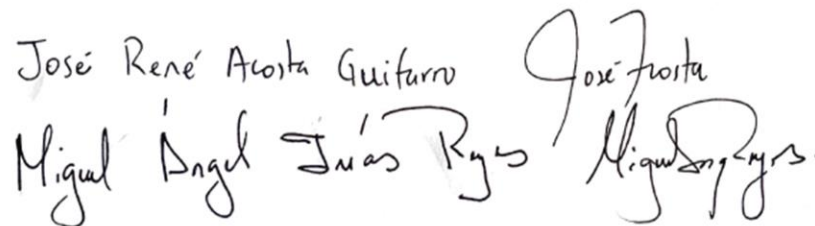 José René Acosta Guifarro José Acosta
Miguel Ángel Inás Reyes Miguel Ang Reyes